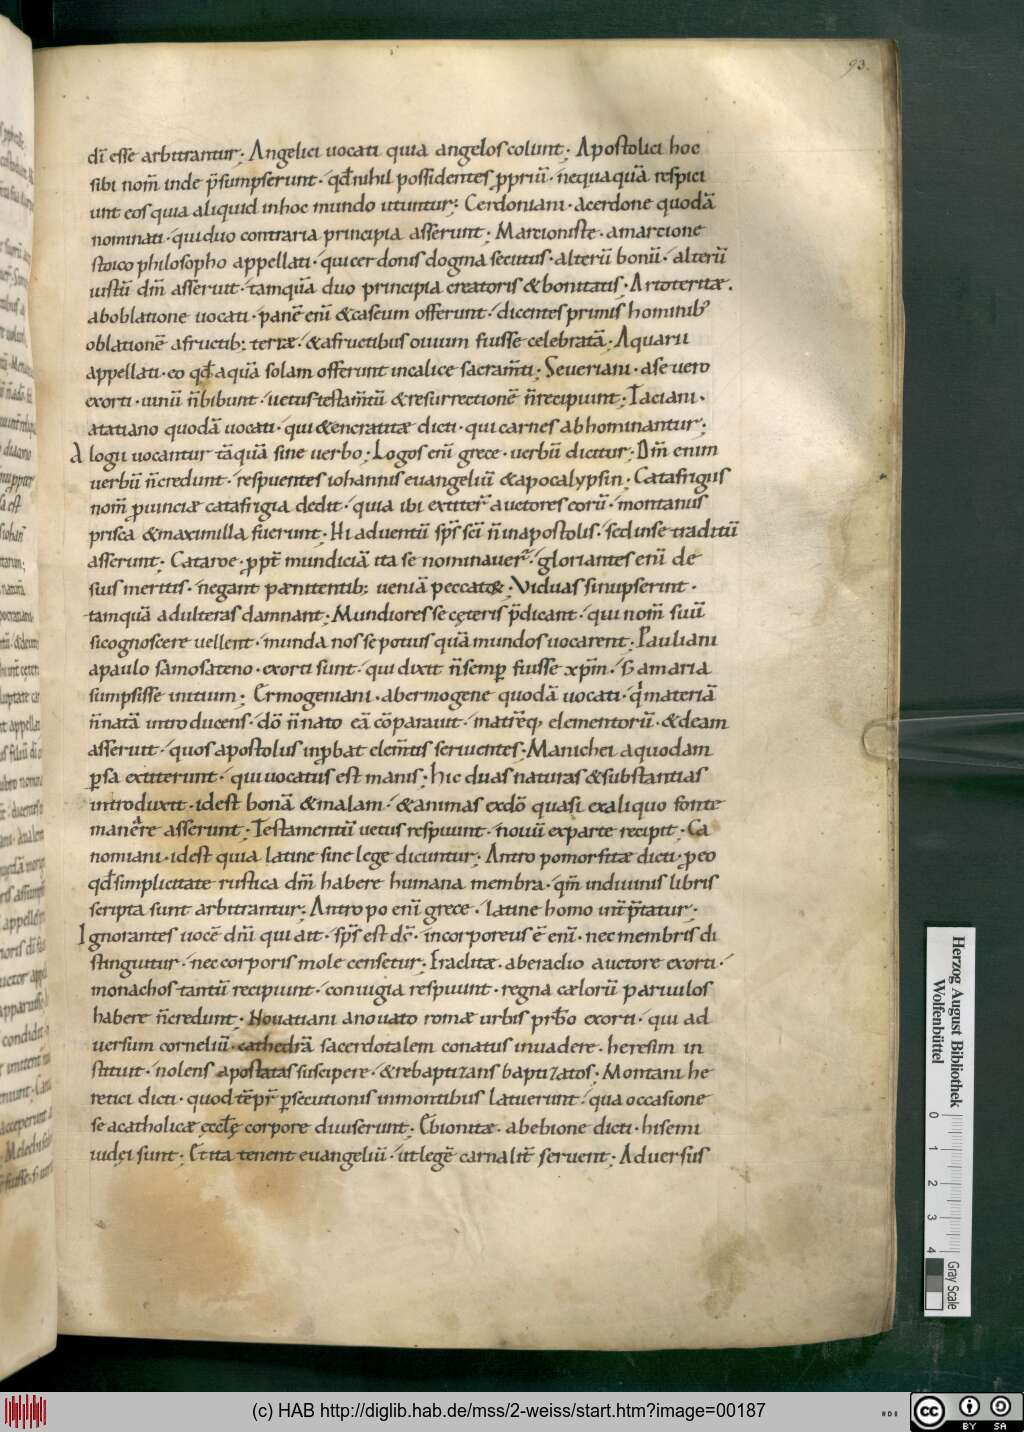 93.
dī esse arbitrantur; Angelici uocati quia angelos colunt; Apostolici hoc
sibi nom̄ inde p̄sumpserunt · qđ nihil possidentes ꝓpriū · nequaquā respici
unt eos quia aliquid inhoc mundo utuntur; Cerdoniani · acerdone quodā
nominati · qui duo contraria principia asserunt; Marcioniste · amarcione
stoico philosopho appellati · quicerdonis dogma secutus · alterū bonū · alterū
iustū dm̄ asseruit · tamquā duo principia creatoris & bonitatis · Artoteritæ ·
aboblatione uocati · panē enī & caseum offerunt · dicentes primis hominib;
oblationē afructib; terræ · & afructibus ouium fuisse celebratā · Aquarii
appellati · eo qđ aquā solam offerunt incalice sacram̄ti; Seueriani · aseuero
exorti · uinū n̄ bibunt · uetus testam̄tū & resurrectionē n̄ recipiunt; Taciani ·
atatiano quodā uocati · qui & encratitæ dicti · qui carnes abhominantur;
Alogii uocantur tāquā sine uerbo; Logos enī grece · uerbū dicitur; Dm̄ enim
uerbū n̄ credunt · respuentes iohannis euangeliū & apocalypsin; Catafrigus
nom̄ ꝓuinciæ catafrigia dedit · quia ibi extiter̄ auctores eorū · montanus
prisca & maximilla fuerunt; Hi aduentū sp̄s sc̄i n̄ inapostolis · sed inse traditū
asserunt; Cataroe · ꝓpt̄ mundiciā ita se nominauer̄ · gloriantes enī de
suis meritis · negant pænitentib; ueniā peccator̄ · Viduas si nupserint ·
tamquā adulteras damnant; Mundiores se cęteris p̄dicant · qui nom̄ suū
sicognoscere uellent · munda nos se potius quā mundos uocarent; Pauliani
apaulo samosateno · exorti sunt · qui dixit n̄ semꝑ fuisse xp̄m · s̄ amaria
sumpsisse initium; Ermogeniani · abermogene quodā uocati · q̄ materiā
n̄ natā introducens · dō n̄ nato eā cōparauit · matrēq; elementorū · & deam
asseruit · quos apostolus inꝓbat elem̄tis seruientes; Manichei aquodam
ꝑsa extiterunt · qui uocatus est manis; hic duas naturas & substantias
introduxit · idest bonā & malam · & animas exdō quasi exaliquo fonte
manere asserunt; Testamentū uetus respuunt · nouū exparte recipit; Ca
nomiani · idest quia latine sine lege dicuntur; Antropomorfitæ dicti · ꝓ eo
qđ simplicitate rustica dm̄ habere humana membra · qm̄ indiuinis libris
scripta sunt arbitrantur; Antropo enī grece · latine homo int̄p̄tatur;
Ignorantes uocē dn̄i qui ait · sp̄s est dꞩ · incorporeus ē enī · nec membris di
stinguitur · nec corporis mole censetur; Eraclitæ · aberaclio auctore exorti ·
monachos tantū recipiunt · coniugia respuunt · regna cælorū paruulos
habere n̄ credunt; Nouatiani anouato romæ urbis prb̄o exorti · qui ad
uersum corneliū · cathedrā sacerdotalem conatus inuadere · heresim in
stituit · nolens apostatas suscipere · & rebaptizans baptizatos; Montani he
retici dicti · quod tēpr̄ ꝑsecutionis inmontibus latuerunt · qua occasione
se acatholicæ ęccłę corpore diuiserunt; Ebionitæ · abebione dicti · hi semi
iudęi sunt; Et ita tenent euangeliū · ut legē carnalit̄ seruent; Aduersus
Herzog August Bibliothek
Wolfenbüttel
0 1 2 3 4
Gray Scale
(c) HAB http://diglib.hab.de/mss/2-weiss/start.htm?image=00187
cc BY SA